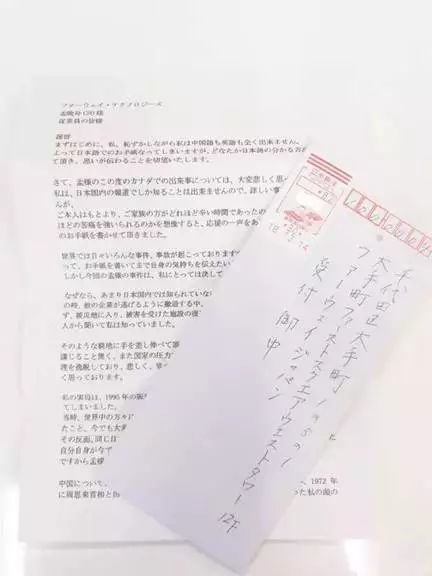 ファーウェイ・テクノロジーズ
孟晩舟 CFO 様
従業員の皆様
拝啓
まずはじめに、私、恥ずかしながら私は中国語も英語も全く出来ません。
よって日本語でのお手紙なってしまいますが、どなたか日本語の分かる
て頂き、思いが伝わることを切望いたします。
さて、孟様のこの度のカナダでの出来事については、大変悲しく思
私は、日本国内の報道でしか知ることは出来ませんので、詳しい事
んが、
ご本人はもとより、ご家族の方がどれほど辛い時間であったの
ほどの苦痛を強いられるのかを想像すると、応援の一声をあ
のお手紙を書かせて頂きました。
世界では日々いろんな事件、事故が起こっておりますが
って、お手紙を書いてまで自身の気持ちを伝えたい
しかし今回の孟様の事件は、私にとっては決して
なぜなら、あまり日本国内では知られていな
の時、他の企業が逃げるように撤退する中、
ず、被災地に入り、被害を受けた施設の復
人から聞いて私は知っていました。
そのような窮地に手を差し伸べて
講じること無く、また国家の圧力
理を逸脱しており、悲しく、
く思っております。
私の実家は、1995年の阪
てしまいました。
当時、世界中の方々に
たこと、今でも大
その反面、同じ日
自分自身が今で
ですから孟様
中国について、
1972 年
に周恩来首相と
った私の祖の
千代田区大手町1の5の1
大手町ファーストスクエアウエストタワー12F
ファーウェイジャパン
受付 御中